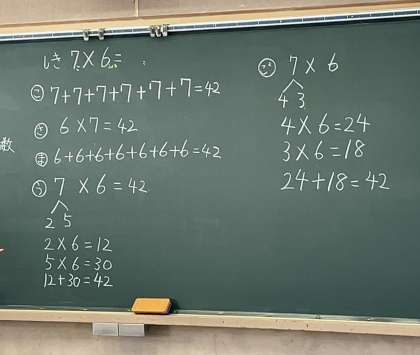 しき 7×6=
7+7+7+7+7+7=42
6×7=42
6+6+6+6+6+6+6=42
7×6=42
2 5
2×6=12
5×6=30
12+30=42
7×6
4 3
4×6=24
3×6=18
24+18=42
数